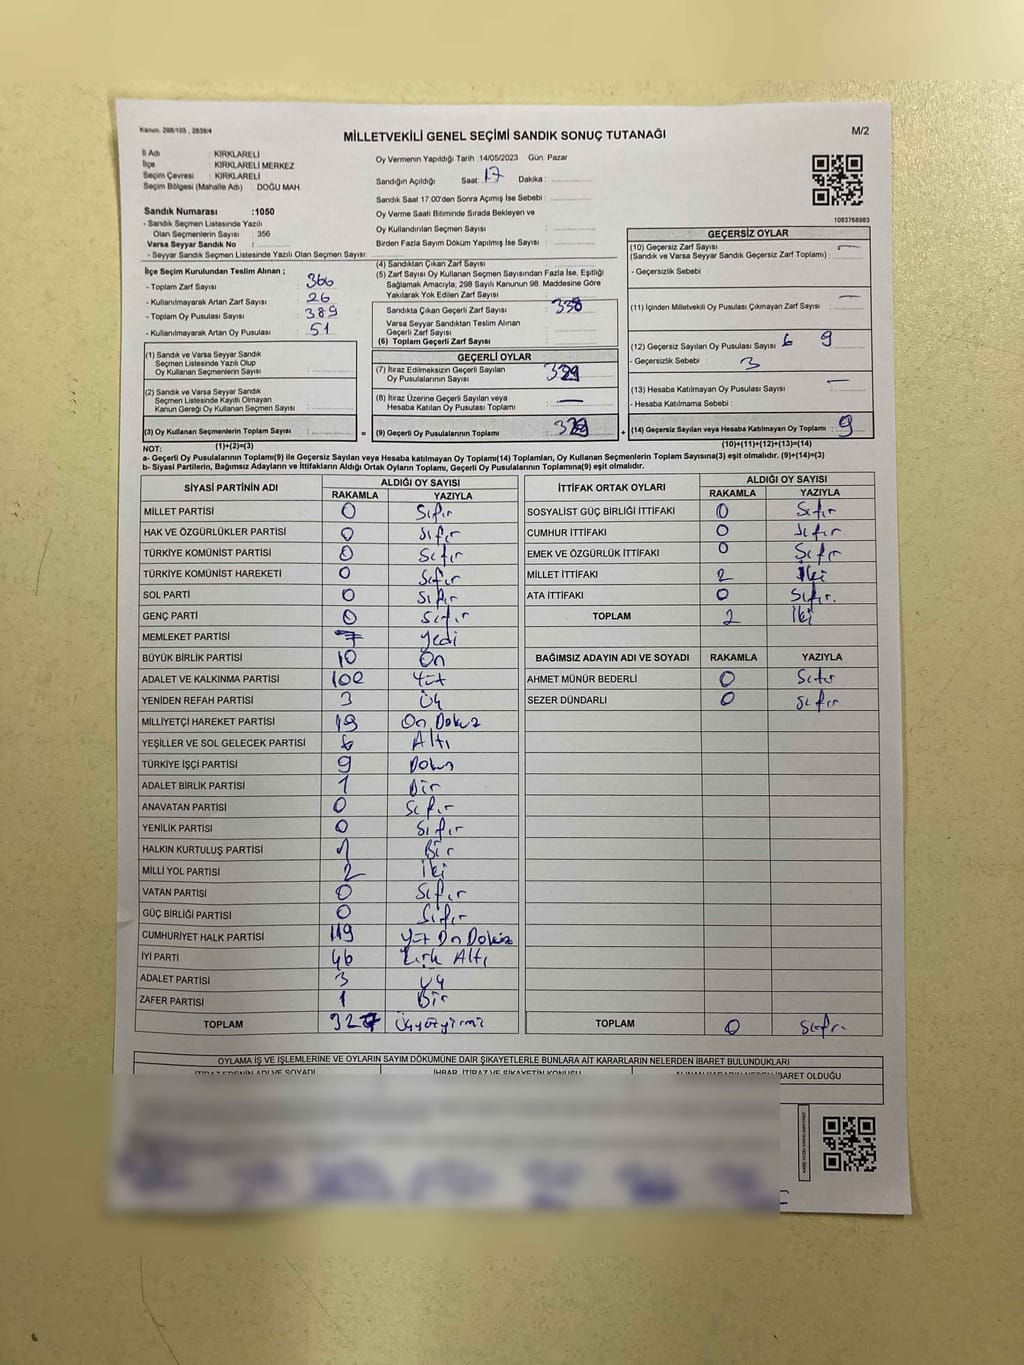 Kanun. 298/105 , 2839/4
MİLLETVEKİLİ GENEL SEÇİMİ SANDIK SONUÇ TUTANAĞI
M/2
İl Adı : KIRKLARELİ
İlçe : KIRKLARELİ MERKEZ
Seçim Çevresi : KIRKLARELİ
Seçim Bölgesi (Mahalle Adı) : DOĞU MAH.
Sandık Numarası :1050
- Sandık Seçmen Listesinde Yazılı
Olan Seçmenlerin Sayısı : 356
Varsa Seyyar Sandık No :
- Seyyar Sandık Listesinde Yazılı Olan Seçmen Sayısı:
Oy Vermenin Yapıldığı Tarih :14/05/2023 Gün: Pazar
Sandığın Açıldığı Saat: 17 Dakika:
Sandık Saat 17:00'den Sonra Açımış İse Sebebi :
Oy Verme Saati Bitiminde Sırada Bekleyen ve
Oy Kullandırılan Seçmen Sayısı :
Birden Fazla Sayım Döküm Yapılmış İse Sayısı :
1083768983
İlçe Seçim Kurulundan Teslim Alınan ;
- Toplam Zarf Sayısı : 366
- Kullanılmayarak Artan Zarf Sayısı : 26
- Toplam Oy Pusulası Sayısı : 389
- Kullanılmayarak Artan Oy Pusulası : 51
(1) Sandık ve Varsa Seyyar Sandık
Seçmen Listesinde Yazılı Olup
Oy Kullanan Seçmenlerin Sayısı :
(2) Sandık ve Varsa Seyyar Sandık
Listesinde Kayıtlı Olmayan
Kanun Gereği Oy Kullanan Seçmen Sayısı :
(3) Oy Kullanan Seçmenlerin Toplam Sayısı :
(1)+(2)=(3)
(4) Sandıktan Çıkan Zarf Sayısı :
(5) Zarf Sayısı Oy Kullanan Seçmen Sayısından Fazla İse, Eşitliği
Sağlamak Amacıyla, 298 Sayılı Kanunun 98. Maddesine Göre
Yakılarak Yok Edilen Zarf Sayısı :
Sandıkta Çıkan Geçerli Zarf Sayısı : 338
Varsa Seyyar Sandıktan Teslim Alınan
Geçerli Zarf Sayısı :
(6) Toplam Geçerli Zarf Sayısı :
GEÇERLİ OYLAR
(7) İtiraz Edilmeksizin Geçerli Sayılan
Oy Pusulalarının Sayısı : 329
(8) İtiraz Üzerine Geçerli Sayılan veya
Hesaba Katılan Oy Pusulası Toplamı : —
= (9) Geçerli Oy Pusulalarının Toplamı : 329 +
GEÇERSİZ OYLAR
(10) Geçersiz Zarf Sayısı —
(Sandık ve Varsa Seyyar Sandık Geçersiz Zarf Toplamı) :
- Geçersizlik Sebebi :
(11) İçinden Milletvekili Oy Pusulası Çıkmayan Zarf Sayısı : —
(12) Geçersiz Sayılan Oy Pusulası Sayısı : 6 9
- Geçersizlik Sebebi : 3
(13) Hesaba Katılmayan Oy Pusulası Sayısı : —
- Hesaba Katılmama Sebebi :
(14) Geçersiz Sayılan veya Hesaba Katılmayan Oy Toplamı : 9
(10)+(11)+(12)+(13)=(14)
NOT:
a- Geçerli Oy Pusulalarının Toplamı(9) ile Geçersiz Sayılan veya Hesaba katılmayan Oy Toplamı(14) Toplamları, Oy Kullanan Seçmenlerin Toplam Sayısına(3) eşit olmalıdır. (9)+(14)=(3)
b- Siyasi Partilerin, Bağımsız Adayların ve İttifakların Aldığı Ortak Oyların Toplamı, Geçerli Oy Pusulalarının Toplamına(9) eşit olmalıdır.
SİYASİ PARTİNİN ADI ALDIĞI OY SAYISI
RAKAMLA YAZIYLA
MİLLET PARTİSİ 0 Sıfır
HAK VE ÖZGÜRLÜKLER PARTİSİ 0 sıfır
TÜRKİYE KOMÜNİST PARTİSİ 0 Sıfır
TÜRKİYE KOMÜNİST HAREKETİ 0 Sıfır
SOL PARTİ 0 Sıfır
GENÇ PARTİ 0 Sıfır
MEMLEKET PARTİSİ 7 Yedi
BÜYÜK BİRLİK PARTİSİ 10 On
ADALET VE KALKINMA PARTİSİ 100 Yüz
YENİDEN REFAH PARTİSİ 3 Üç
MİLLİYETÇİ HAREKET PARTİSİ 19 On Dokuz
YEŞİLLER VE SOL GELECEK PARTİSİ 6 Altı
TÜRKİYE İŞÇİ PARTİSİ 9 Dokuz
ADALET BİRLİK PARTİSİ 1 Bir
ANAVATAN PARTİSİ 0 Sıfır
YENİLİK PARTİSİ 0 Sıfır
HALKIN KURTULUŞ PARTİSİ 1 Bir
MİLLİ YOL PARTİSİ 2 İki
VATAN PARTİSİ 0 Sıfır
GÜÇ BİRLİĞİ PARTİSİ 0 Sıfır
CUMHURİYET HALK PARTİSİ 119 Yüz On Dokuz
İYİ PARTİ 46 Kırk Altı
ADALET PARTİSİ 3 Üç
ZAFER PARTİSİ 1 Bir
TOPLAM 327 Üçyüzyirmi
İTTİFAK ORTAK OYLARI ALDIĞI OY SAYISI
RAKAMLA YAZIYLA
SOSYALİST GÜÇ BİRLİĞİ İTTİFAKI 0 Sıfır
CUMHUR İTTİFAKI 0 Sıfır
EMEK VE ÖZGÜRLÜK İTTİFAKI 0 Sıfır
MİLLET İTTİFAKI 2 İki
ATA İTTİFAKI 0 Sıfır.
TOPLAM 2 İki
BAĞIMSIZ ADAYIN ADI VE SOYADI RAKAMLA YAZIYLA
AHMET MÜNÜR BEDERLİ 0 Sıfır
SEZER DÜNDARLI 0 Sıfır
TOPLAM 0 Sıfır.
OYLAMA İŞ VE İŞLEMLERİNE VE OYLARIN SAYIM DÖKÜMÜNE DAİR ŞİKAYETLERLE BUNLARA AİT KARARLARIN NELERDEN İBARET BULUNDUKLARI
İTİRAZ EDENİN ADI VE SOYADI İHBAR, İTİRAZ VE ŞİKAYETİN KONUSU ALINAN KARARIN NEDEN İBARET OLDUĞU